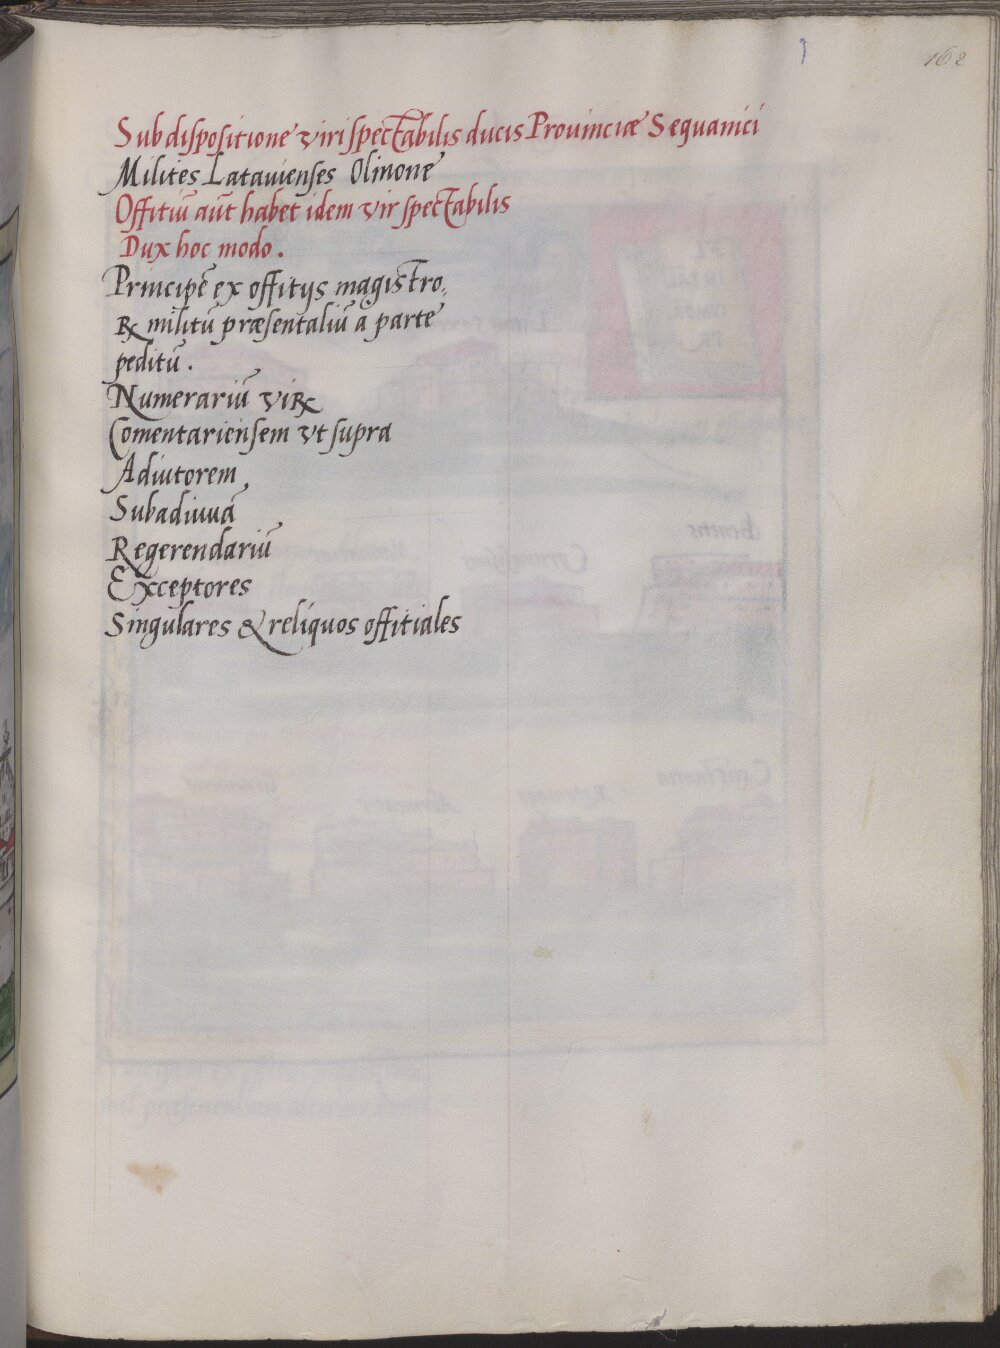 162
Sub dispositione viri spectabilis ducis Prouinciæ Sequanici
Milites Latauienses Olinone
Offitiū aūt habet idem vir spectabilis
Dux hoc modo.
Principē ex offitijs magistro,
℞ militū præsentaliū à parte
peditū.
Numerariū vi℞
Comentariensem vt supra
Adiutorem
Subadiuuā
Regerendariū
Exceptores
Singulares & reliquos offitiales